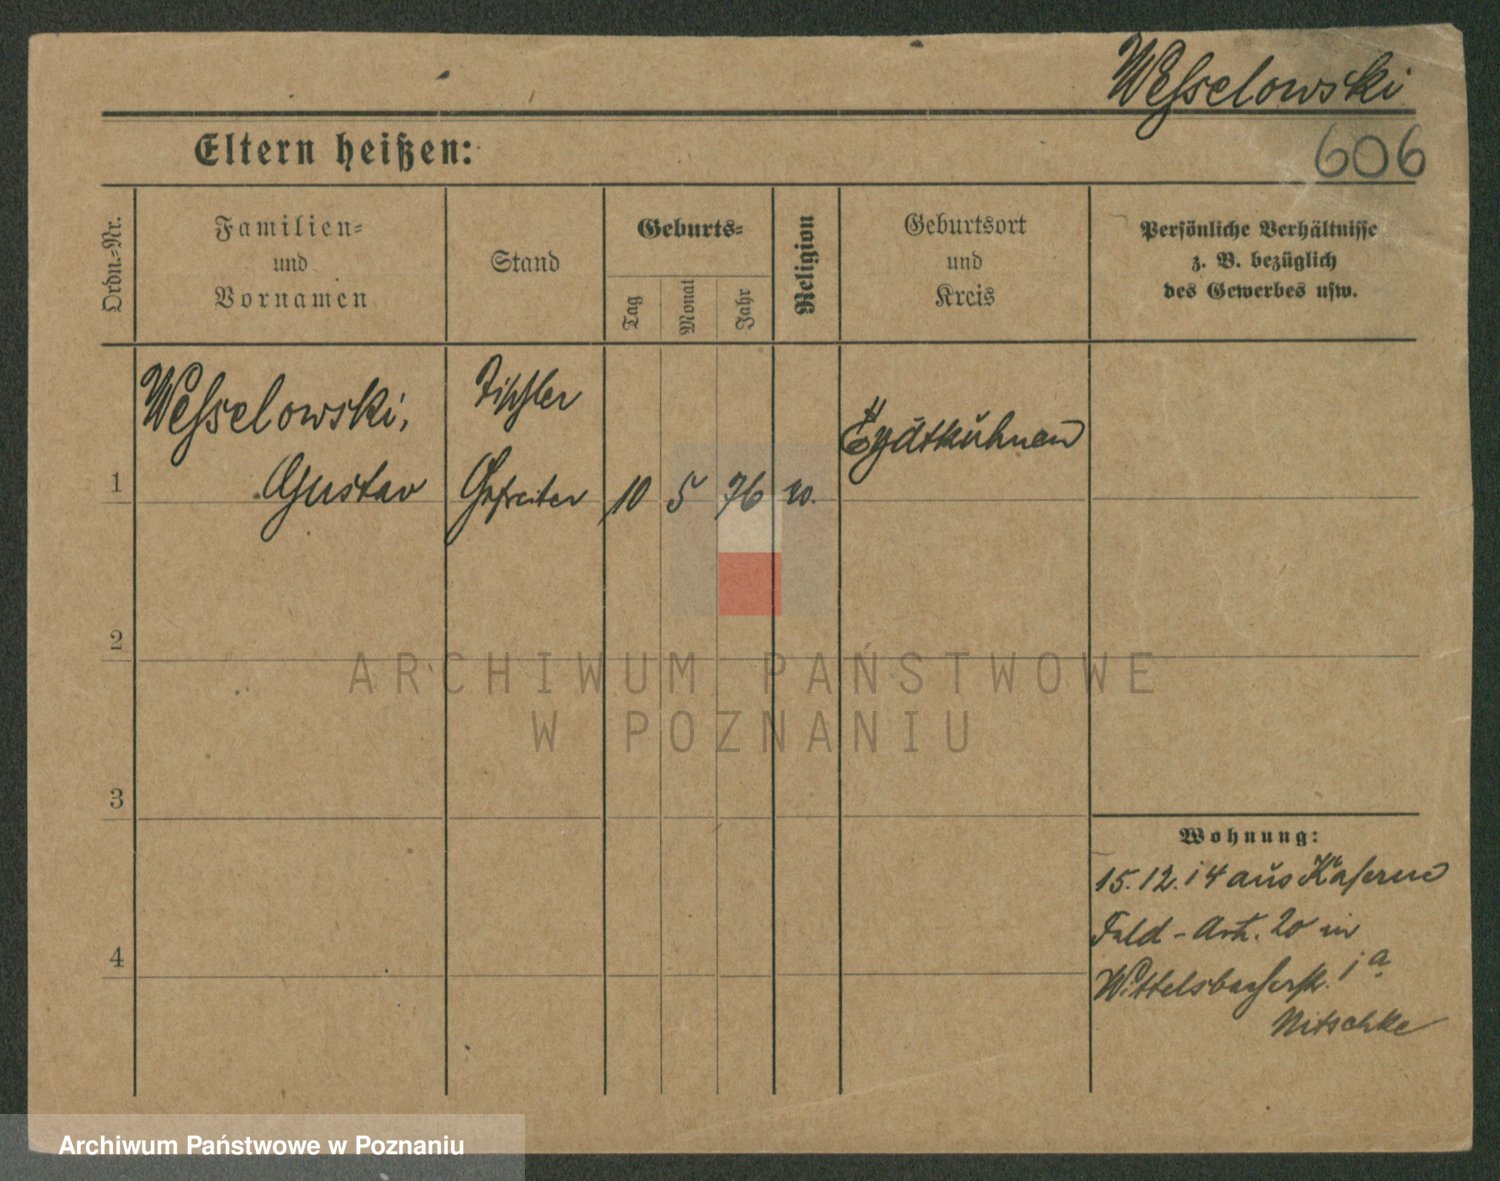 Wesselowski
606
Eltern heißen:
Ordn.-Nr.
Familien-
und
Vornamen
Stand
Geburts-
Tag
Monat
Jahr
Religion
Geburtsort
und
Kreis
Persönliche Verhältnisse
z. B. bezüglich
des Gewerbes usw.
Wesselowski,
Gustav
Tischler
Gefreiter
10 5 76
Eydtkuhnen
1
2
3
4
Wohnung:
15.12.14 aus Kaserne
Feld-Art. 20 in
Wittelsbacherstr. 1a
Nitschke
ARCHIWUM PAŃSTWOWE
W POZNANIU
Archiwum Państwowe w Poznaniu